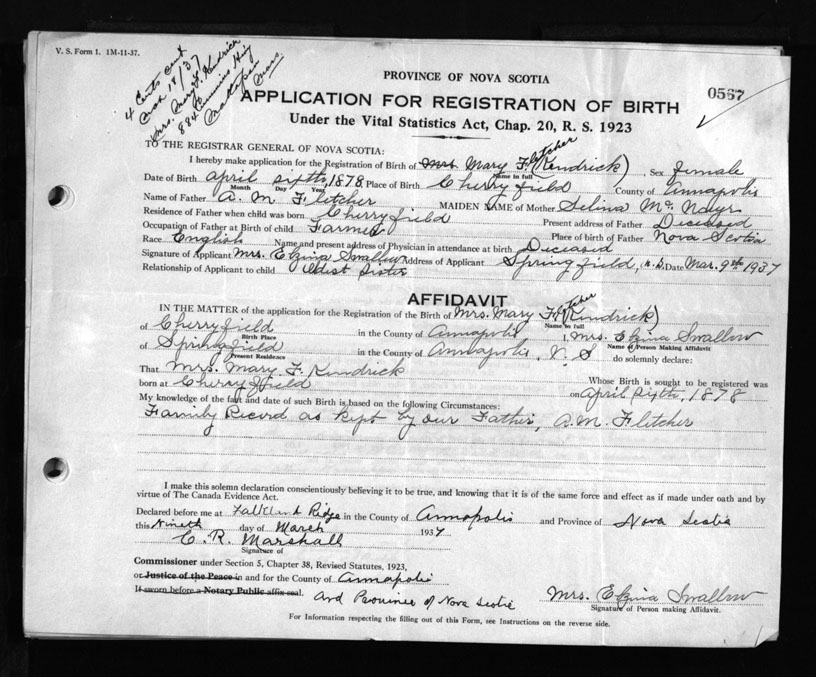 V. S. Form 1. 1M-11-37.
4 Cents
18/37
Mrs. Mary F. Kendrick
884 Cummins Hwy
Mattapan
Mass
PROVINCE OF NOVA SCOTIA
0567
APPLICATION FOR REGISTRATION OF BIRTH
Under the Vital Statistics Act, Chap. 20, R. S. 1923
TO THE REGISTRAR GENERAL OF NOVA SCOTIA:
I hereby make application for the Registration of Birth of Mrs Mary Fletcher (Kendrick), Sex female
Name in full
Date of Birth april sixth, 1878, Place of Birth Cherryfield County of Annapolis
Month Day Year
Name of Father A. M. Fletcher MAIDEN NAME of Mother Selina Mc Nayr
Residence of Father when child was born Cherryfield Present address of Father Deceased
Occupation of Father at Birth of child Farmer Place of birth of Father Nova Scotia
Race English Name and present address of Physician in attendance at birth Deceased
Signature of Applicant Mrs. Elzina Swallow Address of Applicant Springfield, N.S. Date Mar. 9th 1937
Relationship of Applicant to child Oldest Sister
AFFIDAVIT
IN THE MATTER of the application for the Registration of the Birth of Mrs. Mary Fletcher (Kendrick)
Name in full
of Cherryfield in the County of Annapolis I, Mrs. Elzina Swallow
Birth Place Name of Person Making Affidavit
of Springfield in the County of Annapolis, N. S do solemnly declare:
Present Residence
That Mrs. Mary F. Kendrick Whose Birth is sought to be registered was
born at Cherryfield on april sixth, 1878
My knowledge of the fact and date of such Birth is based on the following Circumstances:
Family Record as kept by our Father, A. M. Fletcher
I make this solemn declaration conscientiously believing it to be true, and knowing that it is of the same force and effect as if made under oath and by
virtue of The Canada Evidence Act.
Declared before me at Falkland Ridge in the County of Annapolis and Province of Nova Scotia
this Nineth day of March 1937
C. R. Marshall
Signature of
Commissioner under Section 5, Chapter 38, Revised Statutes, 1923,
or Justice of the Peace in and for the County of Annapolis
If sworn before a Notary Public affix seal. and Province of Nova Scotia Mrs. Elzina Swallow
Signature of Person making Affidavit.
For Information respecting the filling out of this Form, see Instructions on the reverse side.